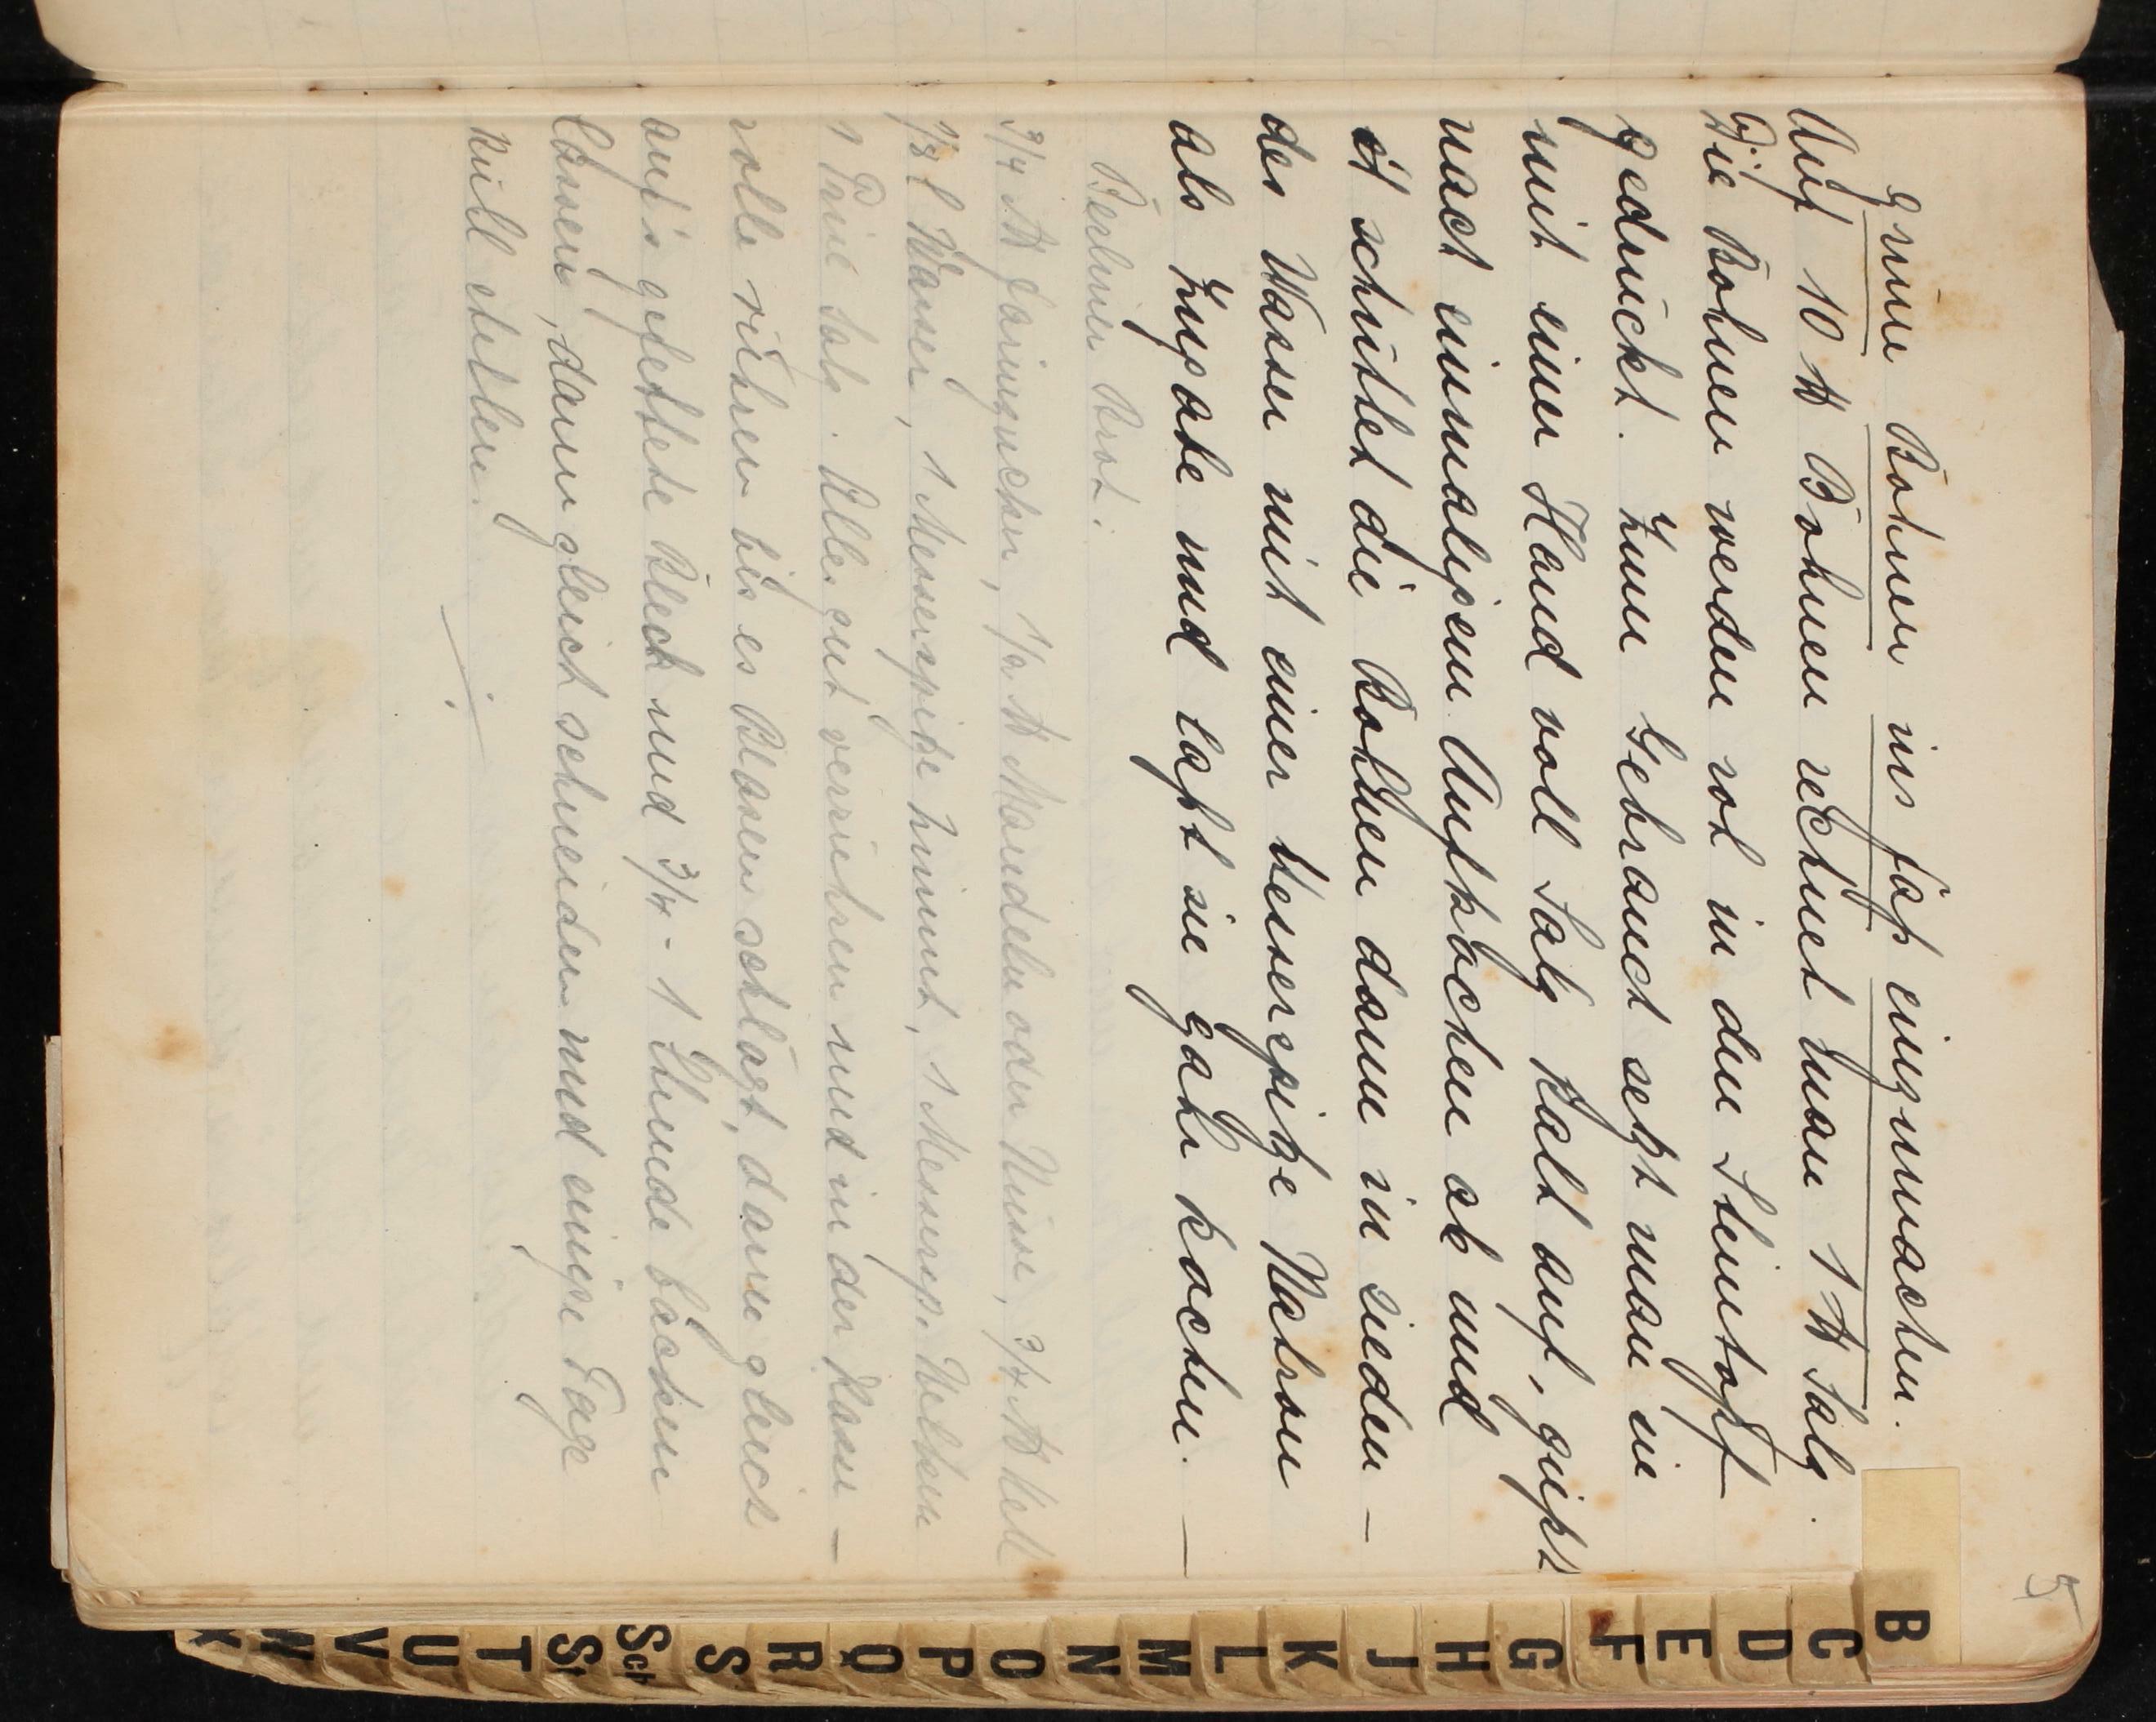 5
grüne Bohnen ins Faß einzumachen.
Auf 10 ℔ Bohnen rechnet man 1 ℔ Salz.
Die Bohnen werden roh in den Steintopf
gedrückt. Zum Gebrauch setzt man sie
mit einer Hand voll Salz kalt auf, gießt
nach einmaligem Aufkochen ab und
schüttet die Bohnen dann in sieden –
des Wasser mit einer Messerspitze Natron
als Zugabe und laßt sie gahr kochen. —
Berliner Brot.
3/4 ℔ Farinzucker, 1/2 ℔ Mandeln oder Nüsse, 3/4 ℔ Mehl
1/8 l Wasser, 1 Messerspitze Zimmt, 1 Messersp. Nelken
1 Prise Salz. Alles gut verrühren und in der Kasse –
rolle rühren bis es Blasen schlägt, dann gleich
auf's gefettete Blech und 3/4 - 1 Stunde backen
lassen, dann gleich schneiden und einige Tage
kühl stellen.
B
C
D
E
F
G
H
J
K
L
M
N
O
P
Q
R
S
Sch
St
T
U
V
W